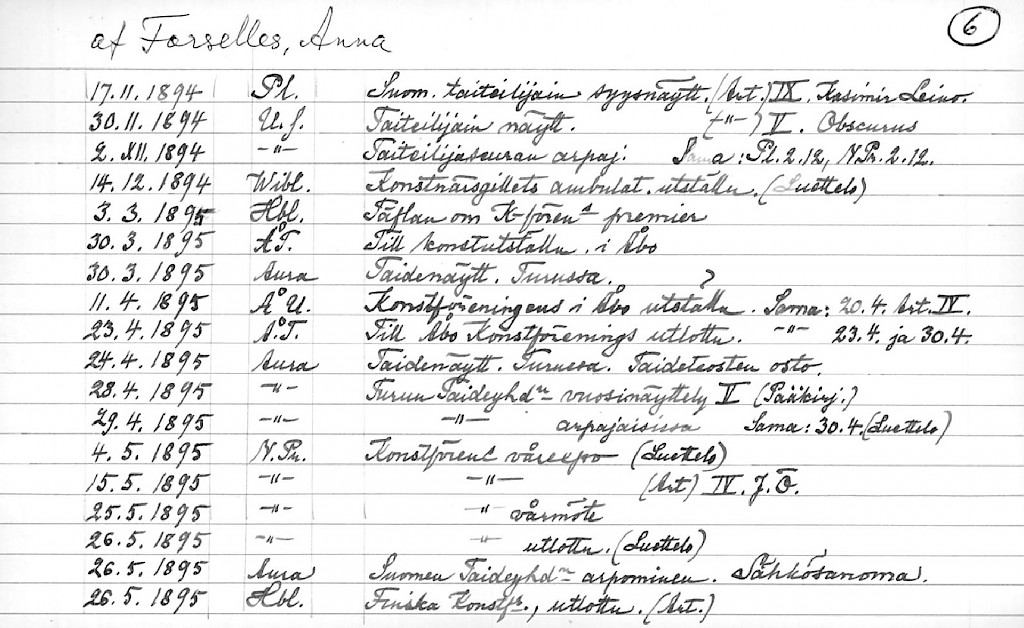 6
af Forselles, Anna
17.11.1894 Pl. Suom. taiteilijain syysnäytt. (Art.) IX. Kasimir Leino.
30.11.1894 U.S. Taiteilijain näytt. (-"-) V. Obscurus
2.XII.1894 -"- Taiteilijaseuran arpaj. Sama: Pl. 2.12, N.Pr. 2.12.
14.12.1894 Wibl. Konstnärsgillets ambulat. utställn. (Luettelo)
3.3.1895 Hbl. Täflan om K-fören premier
30.3.1895 Å.T. Till konstutställn. i Åbo
30.3.1895 Aura Taidenäytt. Turussa.
11.4.1895 Å U. Konstföreningens i Åbo utställn. Sama: 20.4. Art. IV.
23.4.1895 Å.T. Till Åbo Konstförenings utlottn. -"- 23.4. ja 30.4.
24.4.1895 Aura Taidenäytt. Turussa. Taideteosten osto.
28.4.1895 -"- Turun Taideyhdn vuosinäyttely V (Pääkirj.)
29.4.1895 -"- -"- arpajaisissa Sama: 30.4. (Luettelo)
4.5.1895 N.Pr. Konstfören:s vårexpo (Luettelo)
15.5.1895 -"- -"- (Art) IV. J.Ö.
25.5.1895 -"- -"- vårmöte
26.5.1895 -"- -"- utlottn. (Luettelo)
26.5.1895 Aura Suomen Taideyhdn arpominen. Sähkösanoma.
26.5.1895 Hbl. Finska Konstf., utlottn. (Art.)